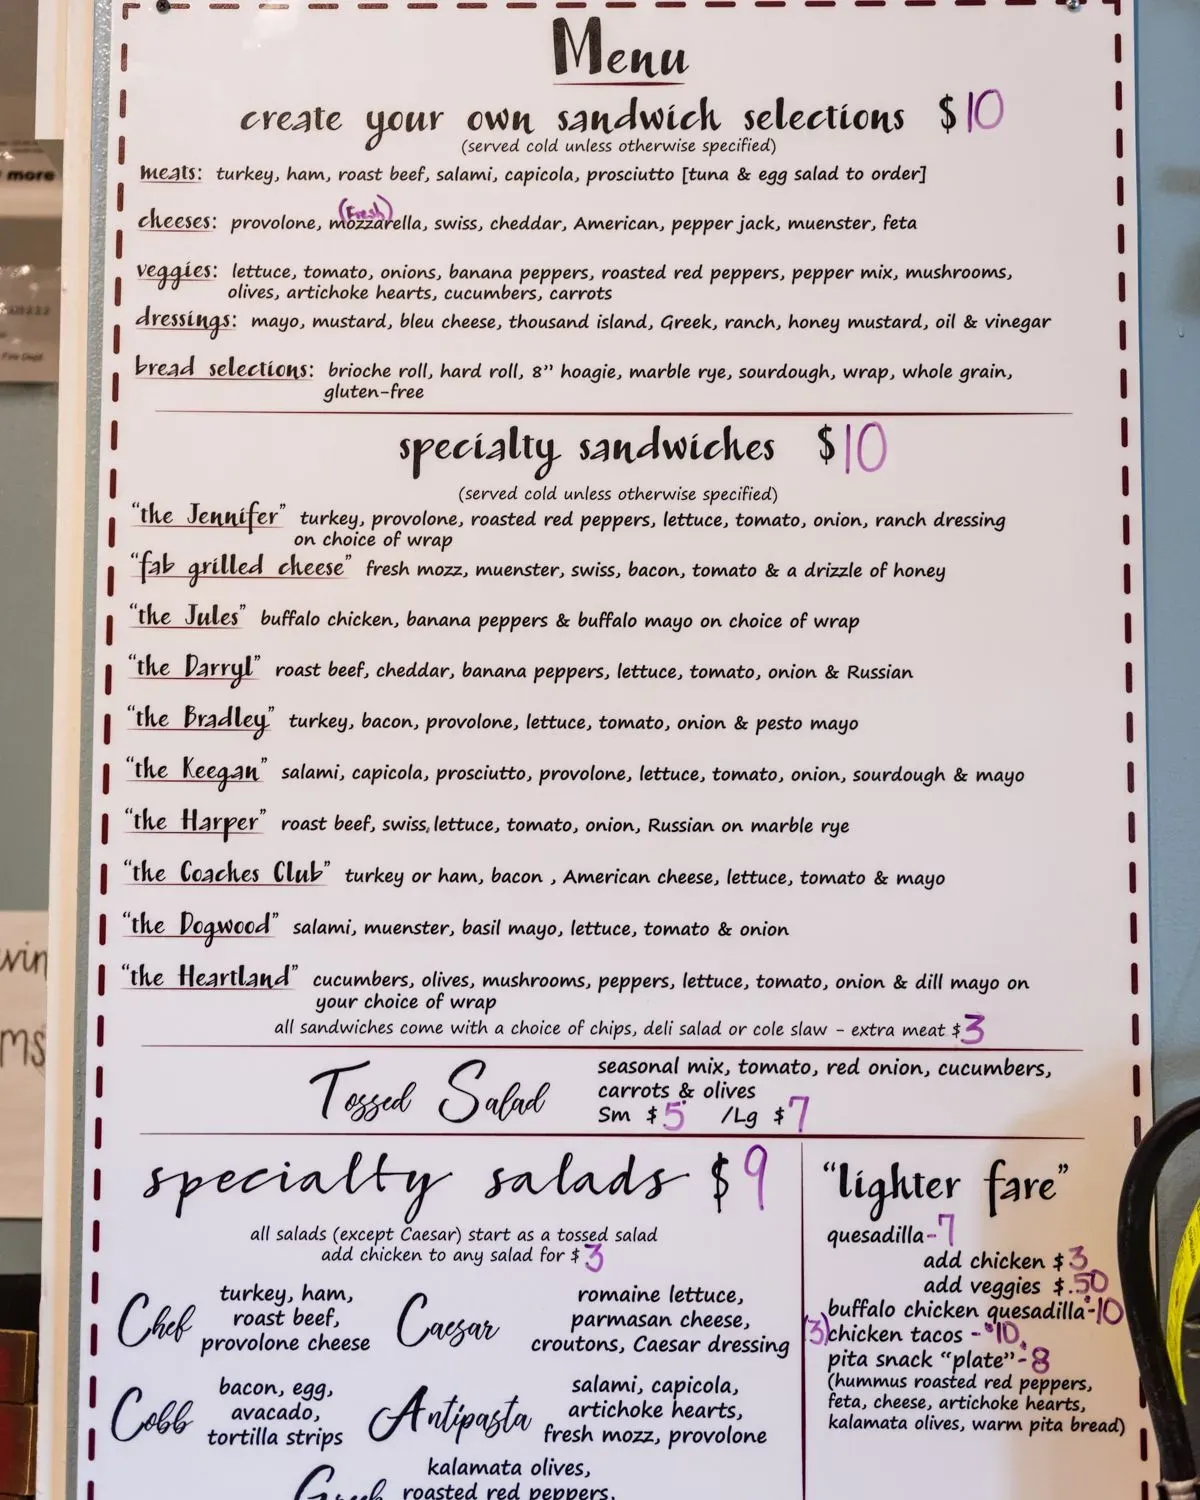 Menu
create your own sandwich selections $10
(served cold unless otherwise specified)
meats: turkey, ham, roast beef, salami, capicola, prosciutto [tuna & egg salad to order]
(Fresh)
cheeses: provolone, mozzarella, swiss, cheddar, American, pepper jack, muenster, feta
veggies: lettuce, tomato, onions, banana peppers, roasted red peppers, pepper mix, mushrooms,
olives, artichoke hearts, cucumbers, carrots
dressings: mayo, mustard, bleu cheese, thousand island, Greek, ranch, honey mustard, oil & vinegar
bread selections: brioche roll, hard roll, 8” hoagie, marble rye, sourdough, wrap, whole grain,
gluten-free
specialty sandwiches $10
(served cold unless otherwise specified)
“the Jennifer” turkey, provolone, roasted red peppers, lettuce, tomato, onion, ranch dressing
on choice of wrap
“fab grilled cheese” fresh mozz, muenster, swiss, bacon, tomato & a drizzle of honey
“the Jules” buffalo chicken, banana peppers & buffalo mayo on choice of wrap
“the Darryl” roast beef, cheddar, banana peppers, lettuce, tomato, onion & Russian
“the Bradley” turkey, bacon, provolone, lettuce, tomato, onion & pesto mayo
“the Keegan” salami, capicola, prosciutto, provolone, lettuce, tomato, onion, sourdough & mayo
“the Harper” roast beef, swiss, lettuce, tomato, onion, Russian on marble rye
“the Coaches Club” turkey or ham, bacon , American cheese, lettuce, tomato & mayo
“the Dogwood” salami, muenster, basil mayo, lettuce, tomato & onion
“the Heartland” cucumbers, olives, mushrooms, peppers, lettuce, tomato, onion & dill mayo on
your choice of wrap
all sandwiches come with a choice of chips, deli salad or cole slaw - extra meat $3
Tossed Salad
seasonal mix, tomato, red onion, cucumbers,
carrots & olives
Sm $5 /Lg $7
specialty salads $9
all salads (except Caesar) start as a tossed salad
add chicken to any salad for $3
Chef
turkey, ham,
roast beef,
provolone cheese
Caesar
romaine lettuce,
parmasan cheese,
croutons, Caesar dressing
Cobb
bacon, egg,
avacado,
tortilla strips
Antipasta
salami, capicola,
artichoke hearts,
fresh mozz, provolone
Greek
kalamata olives,
roasted red peppers,
“lighter fare”
quesadilla-7
add chicken $3
add veggies $.50
buffalo chicken quesadilla-10
(3)chicken tacos -$10
pita snack “plate”-8
(hummus roasted red peppers,
feta, cheese, artichoke hearts,
kalamata olives, warm pita bread)
more